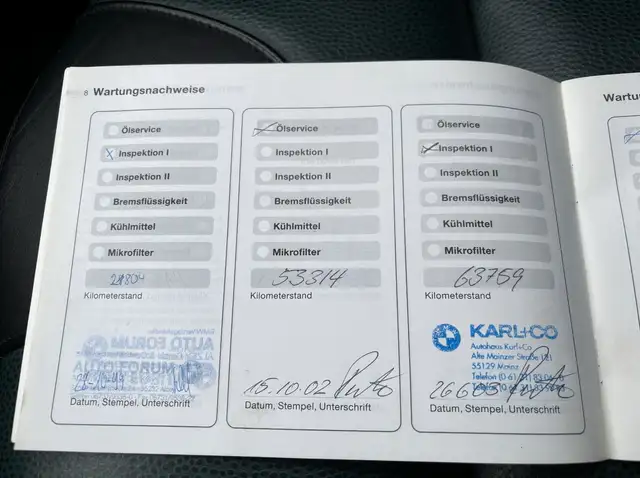 8 Wartungsnachweise
Ölservice
Inspektion I
Inspektion II
Bremsflüssigkeit
Kühlmittel
Mikrofilter
Kilometerstand
AUTO FORUM
Datum, Stempel, Unterschrift
Ölservice
Inspektion I
Inspektion II
Bremsflüssigkeit
Kühlmittel
Mikrofilter
53314
Kilometerstand
15.10.02
Datum, Stempel, Unterschrift
Ölservice
Inspektion I
Inspektion II
Bremsflüssigkeit
Kühlmittel
Mikrofilter
63759
Kilometerstand
KARL+CO
Autohaus Karl+Co
Alte Mainzer Straße 121
55129 Mainz
Telefon (0 61
Datum, Stempel, Unterschrift
Wartu